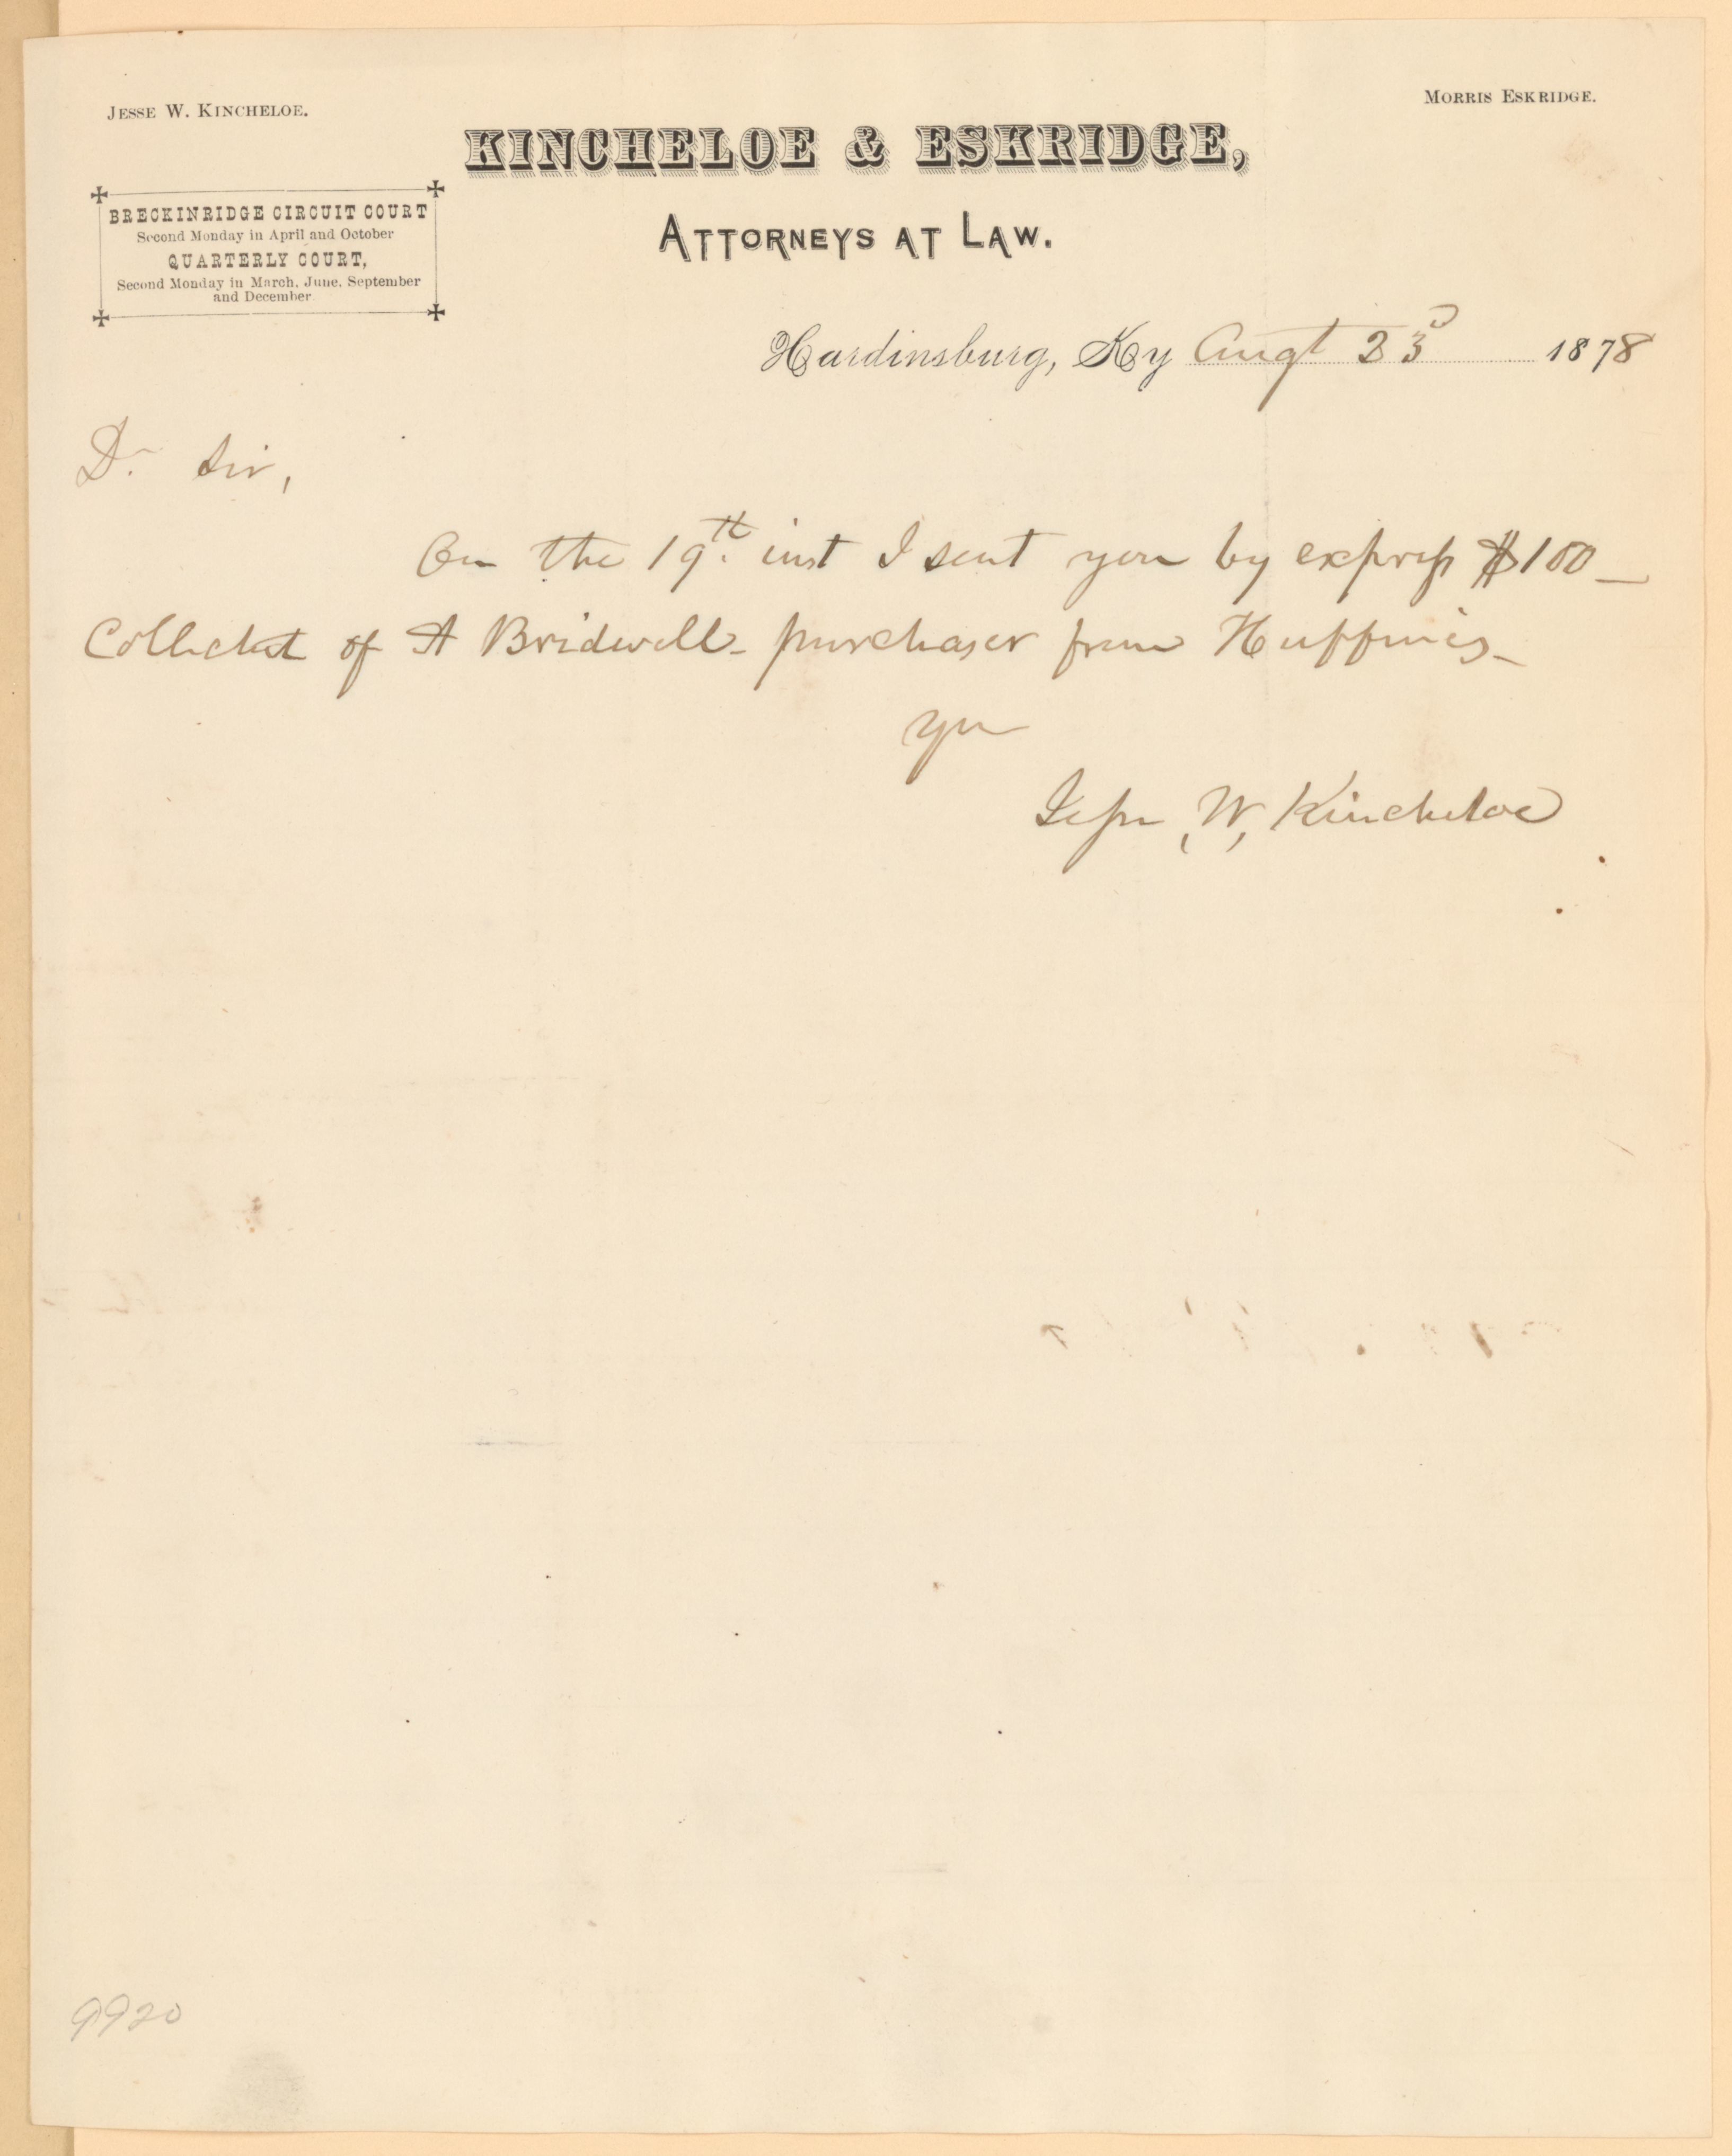 JESSE W. KINCHELOE.
MORRIS ESKRIDGE.
KINCHELOE & ESKRIDGE,
ATTORNEYS AT LAW.
BRECKINRIDGE CIRCUIT COURT
Second Monday in April and October
QUARTERLY COURT,
Second Monday in March, June, September
and December
Hardinsburg, Ky Augt 23d 1878
Dr Sir,
On the 19th inst I sent you by express $100—
Collected of A Bridwell - purchaser from Huffines -
Yrs
Jesse W, Kincheloe
9920